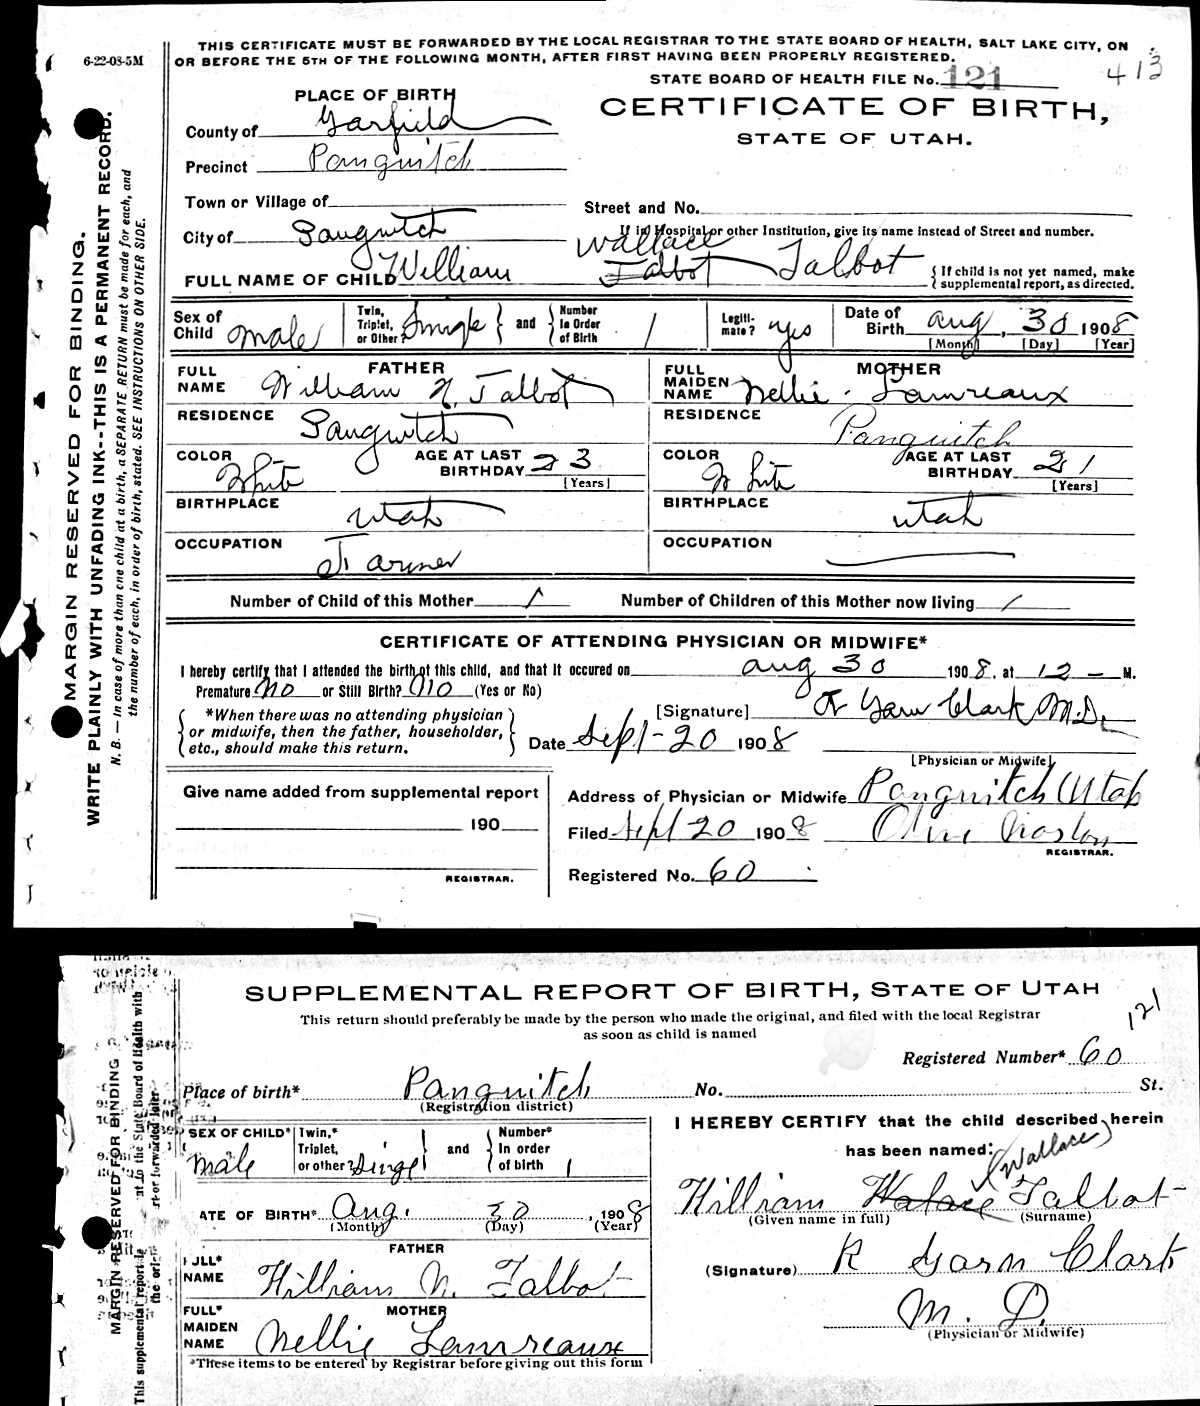 6-22-08-5M
THIS CERTIFICATE MUST BE FORWARDED BY THE LOCAL REGISTRAR TO THE STATE BOARD OF HEALTH, SALT LAKE CITY, ON
OR BEFORE THE 5TH OF THE FOLLOWING MONTH, AFTER FIRST HAVING BEEN PROPERLY REGISTERED.
413
STATE BOARD OF HEALTH FILE No. 121
PLACE OF BIRTH
CERTIFICATE OF BIRTH,
STATE OF UTAH.
County of Garfield
Precinct Panguitch
Town or Village of
Street and No.
City of Panguitch
If in Hospital or other Institution, give its name instead of Street and number.
FULL NAME OF CHILD William Wallace Talbot Talbot
{ If child is not yet named, make supplemental report, as directed.
Sex of Child Male
Twin, Triplet, or Other? Single and Number In Order of Birth 1
Legitimate? yes
Date of Birth Aug. 30 1908
[Month] [Day] [Year]
FATHER
FULL NAME William N. Talbot
MOTHER
FULL MAIDEN NAME Nellie Lamreaux
RESIDENCE Panguitch
RESIDENCE Panguitch
COLOR White AGE AT LAST BIRTHDAY 23 [Years]
COLOR White AGE AT LAST BIRTHDAY 21 [Years]
BIRTHPLACE Utah
BIRTHPLACE Utah
OCCUPATION Farmer
OCCUPATION
Number of Child of this Mother 1 Number of Children of this Mother now living 1
CERTIFICATE OF ATTENDING PHYSICIAN OR MIDWIFE*
I hereby certify that I attended the birth of this child, and that it occured on Aug 30 1908, at 12 - M.
Premature No or Still Birth? No (Yes or No)
*When there was no attending physician
or midwife, then the father, householder,
etc., should make this return.
[Signature] R Garn Clark M.D.
Date Sept-20 1908
[Physician or Midwife]
Give name added from supplemental report
190
REGISTRAR.
Address of Physician or Midwife Panguitch Utah
Filed Sept 20 1908 Olive
REGISTRAR.
Registered No. 60
MARGIN RESERVED FOR BINDING.
WRITE PLAINLY WITH UNFADING INK--THIS IS A PERMANENT RECORD.
N. B. — In case of more than one child at a birth, a SEPARATE RETURN must be made for each, and
the number of each, in order of birth, stated. SEE INSTRUCTIONS ON OTHER SIDE.
SUPPLEMENTAL REPORT OF BIRTH, STATE OF UTAH
This return should preferably be made by the person who made the original, and filed with the local Registrar
as soon as child is named
121
Registered Number* 60
Place of birth* Panguitch No. St.
(Registration district)
SEX OF CHILD* Male
Twin,* Triplet, or other? Single and Number* In order of birth 1
I HEREBY CERTIFY that the child described herein
has been named:
(Wallace)
William Walace Talbot
(Given name in full) (Surname)
ATE OF BIRTH* Aug. 30, 1908
(Month) (Day) (Year)
FATHER
ULL* NAME William N. Talbot
(Signature) R Garn Clark
M. D.
(Physician or Midwife)
MOTHER
FULL* MAIDEN NAME Nellie Lamreaux
*These items to be entered by Registrar before giving out this form
MARGIN RESERVED FOR BINDING
This supplemental report is